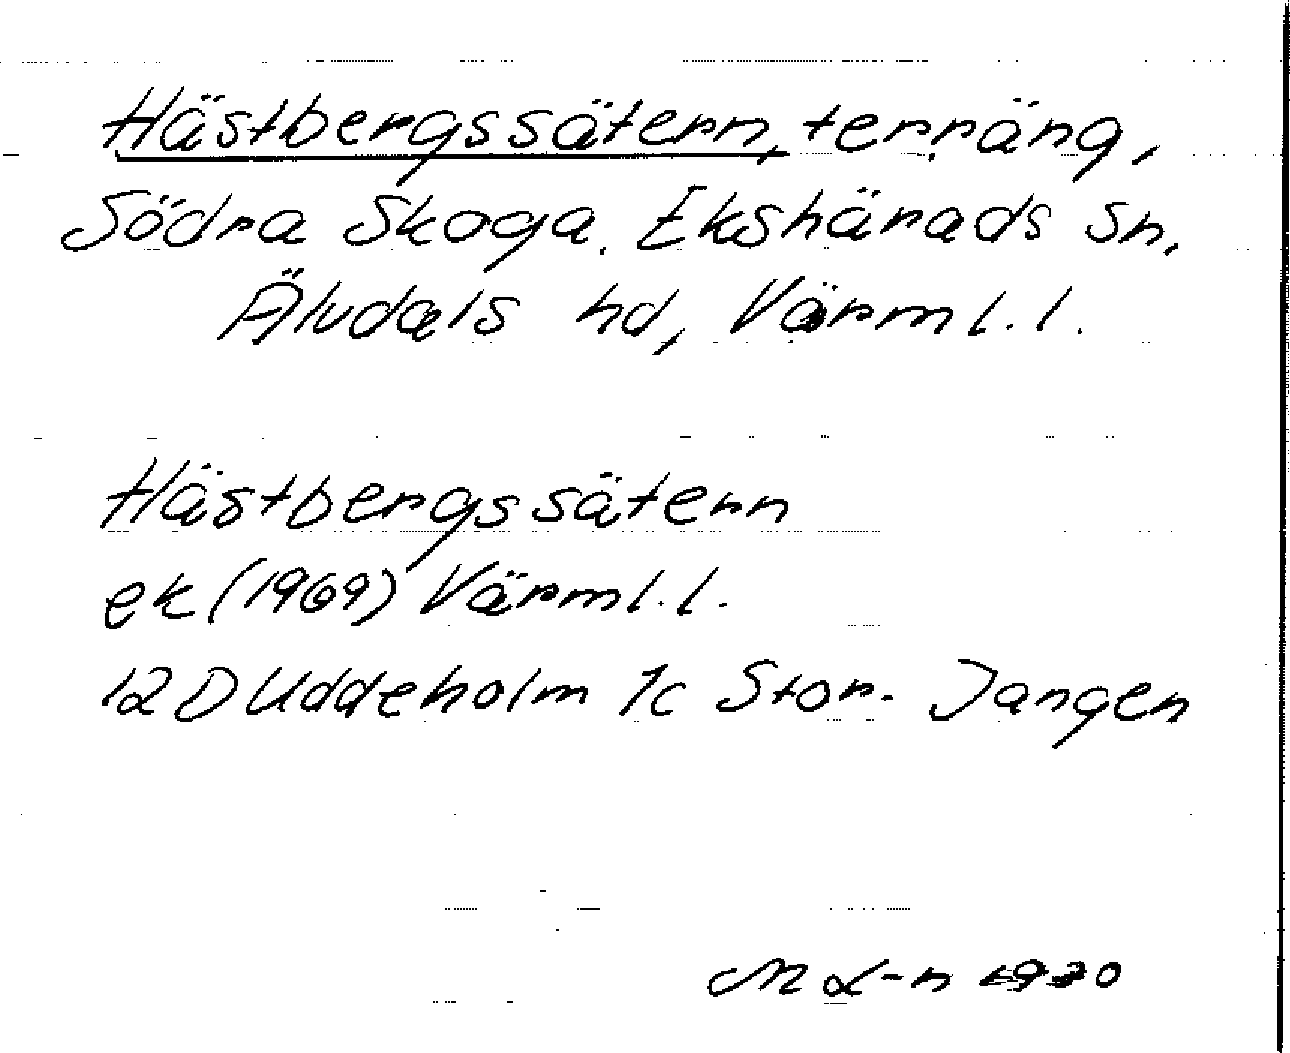 Hästbergssätern, terräng,
Södra Skoga, Ekshärads sn,
Älvdals hd, Värml. l.
Hästbergssätern
ek (1969) Värml. l.
12D Uddeholm 1c Stor-Jangen
M L-n 1970